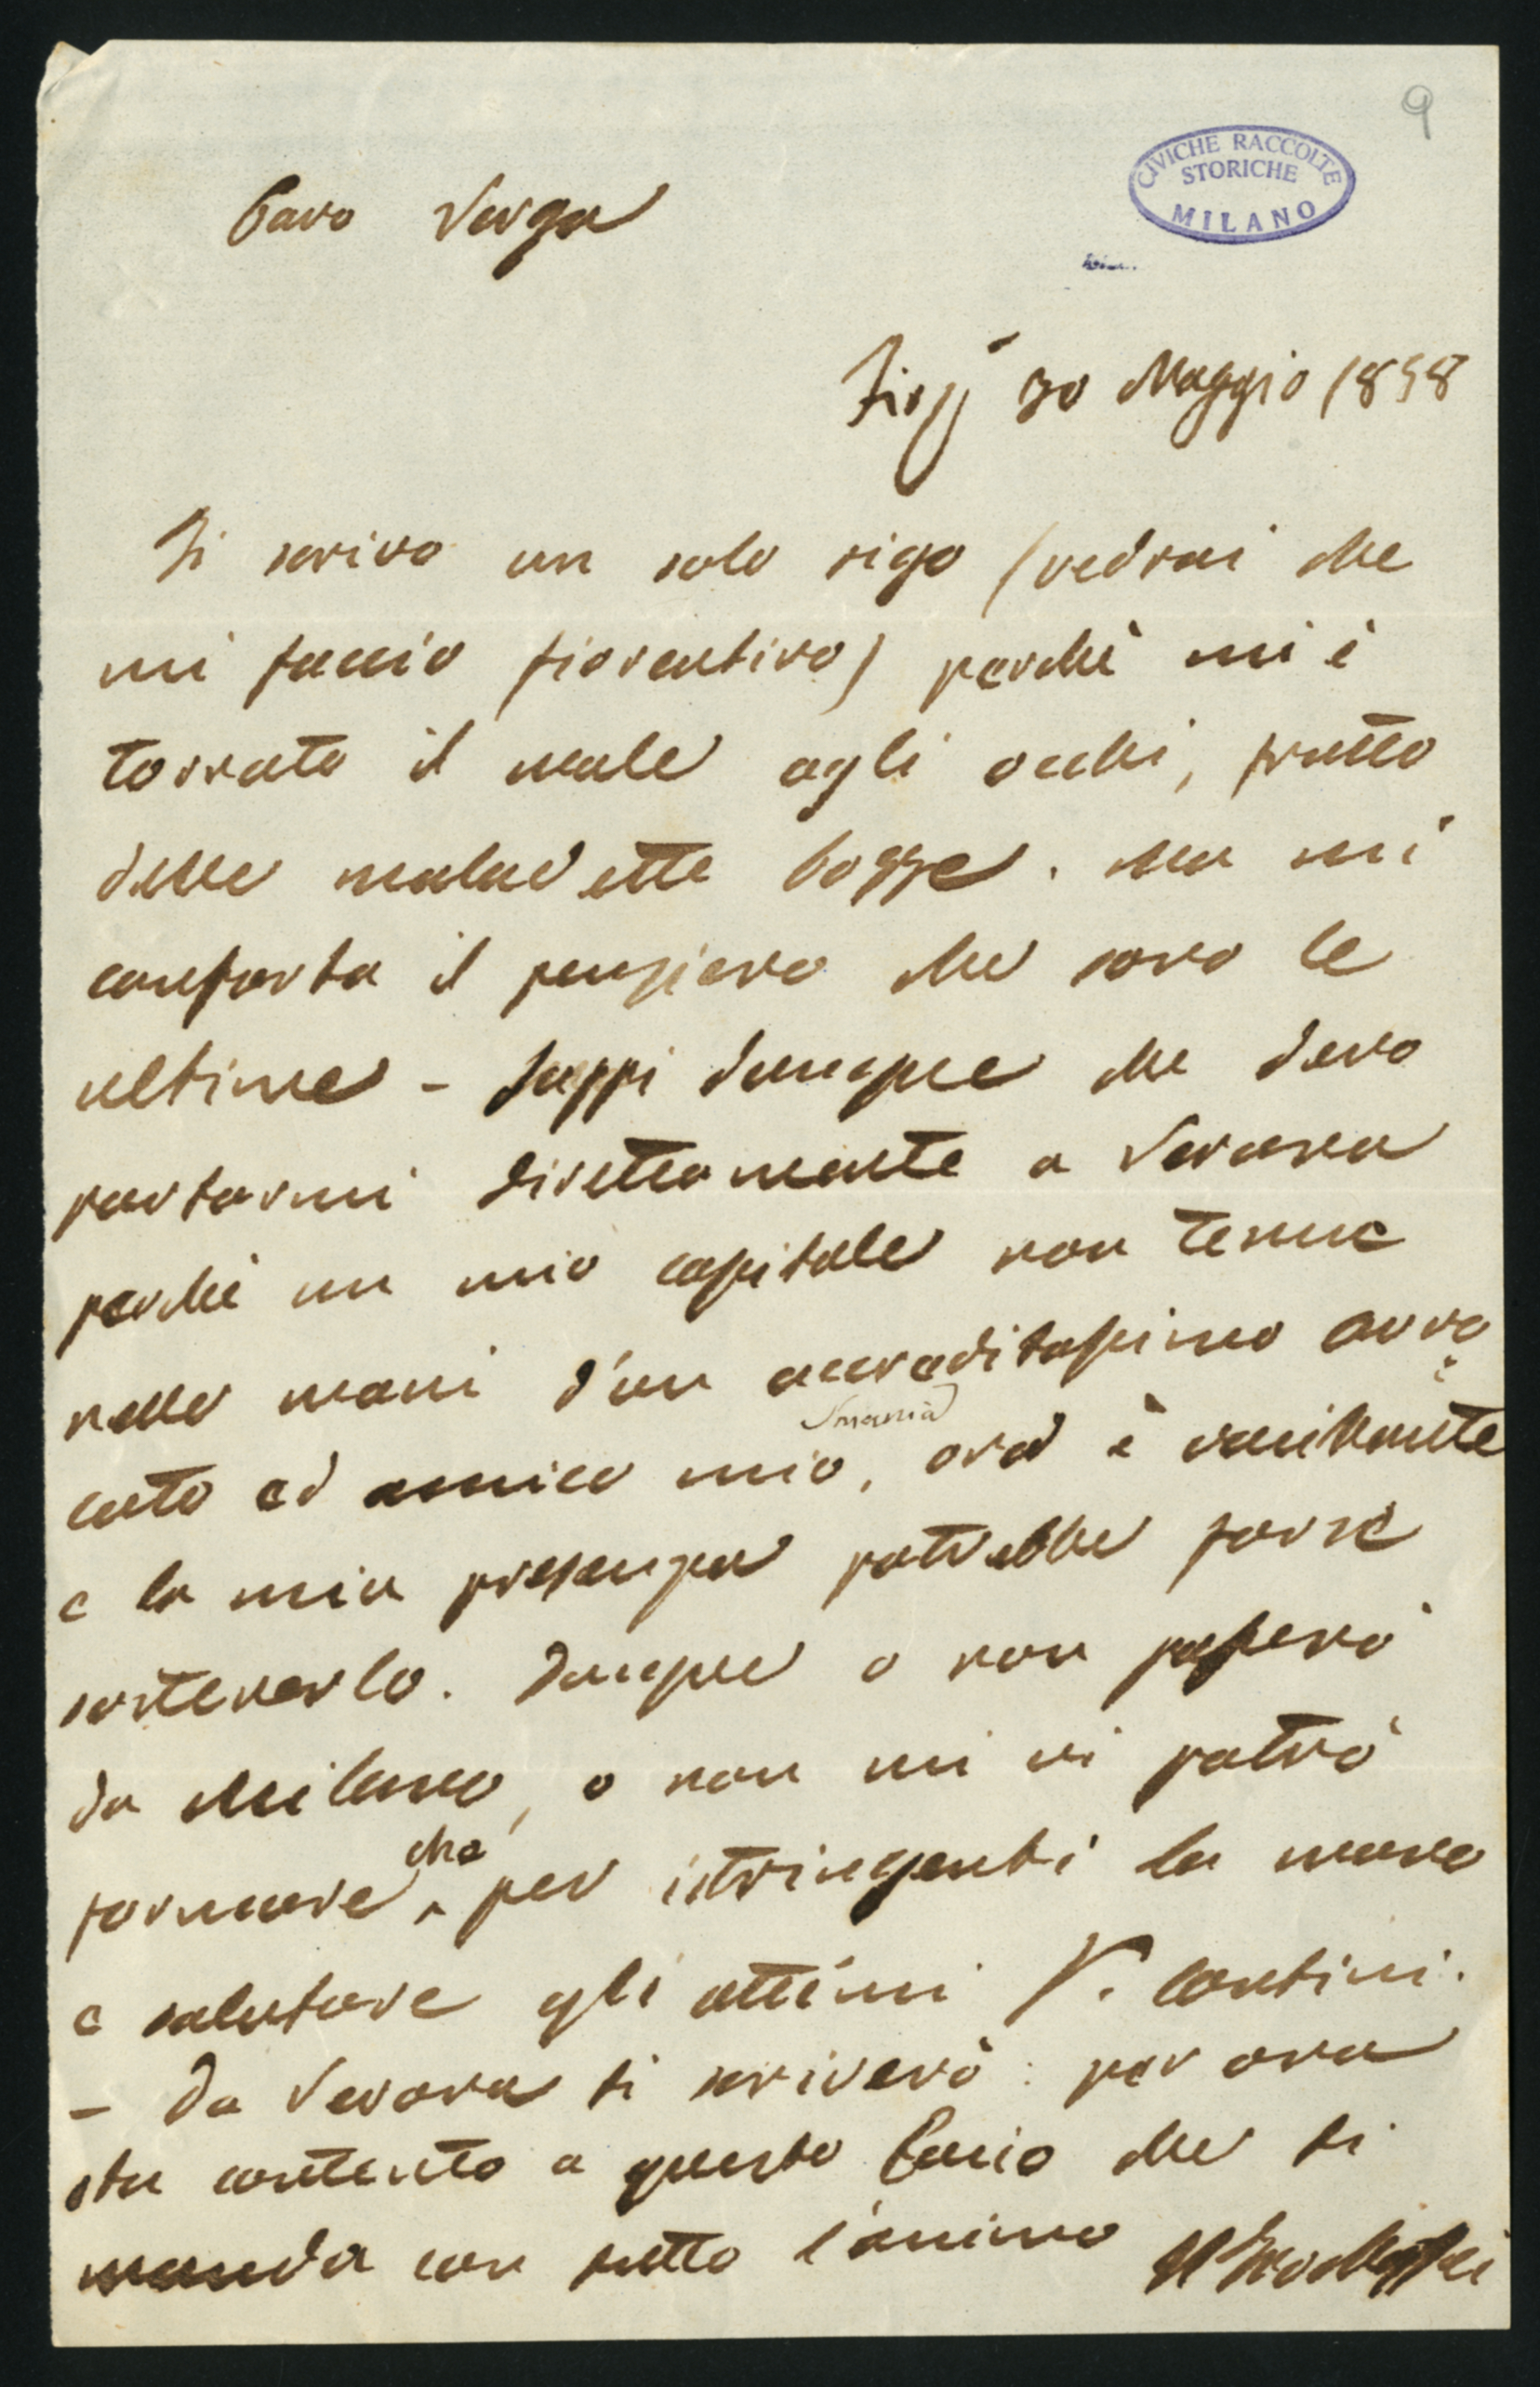 9
CIVICHE RACCOLTE
STORICHE
MILANO
Caro Verga
30 Maggio 1858
Ti scrivo un solo rigo (vedrai che
mi faccio fiorentino) perchè mi è
tornato il male agli occhi, frutto
delle maladette bozze. Ma mi
conforta il pensiero che sono le
ultime - Sappi dunque che devo
portarmi direttamente a Verona
perchè un mio capitale non tenue
nelle mani d'un accreditassimo avvo
cato ed amico mio, ora è vacillante
Smania
e la mia presenza potrebbe forse
sostenerlo. Dunque o non passerò
da Milano, o non mi vi potrò
fermare che per istringerti la mano
e salutare gli ottimi V. Contini.
- Da Verona ti scriverò: per ora
sta contento a questo bacio che ti
manda con tutto l'animo